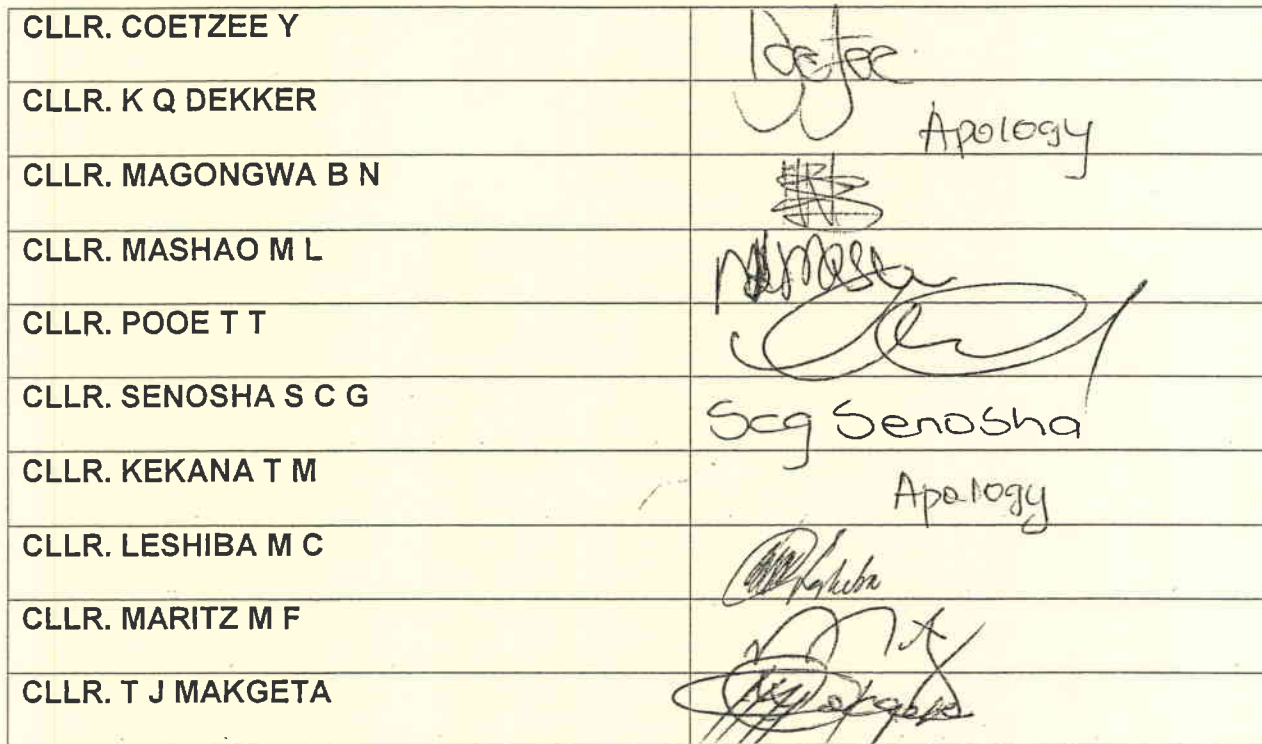 CLLR. COETZEE Y
CLLR. K Q DEKKER Apology
CLLR. MAGONGWA B N
CLLR. MASHAO M L
CLLR. POOE T T
CLLR. SENOSHA S C G Scg Senosha
CLLR. KEKANA T M Apology
CLLR. LESHIBA M C
CLLR. MARITZ M F
CLLR. T J MAKGETA